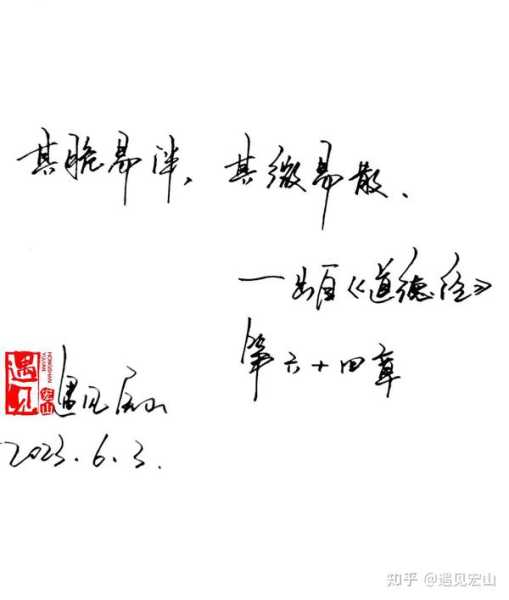 其脆易泮，其微易散.
一出自《道德经》
第六十四章
遇见
宏山
YUJIAN
HONGSHAN
遇见宏山
2023.6.3.
知乎 @遇见宏山